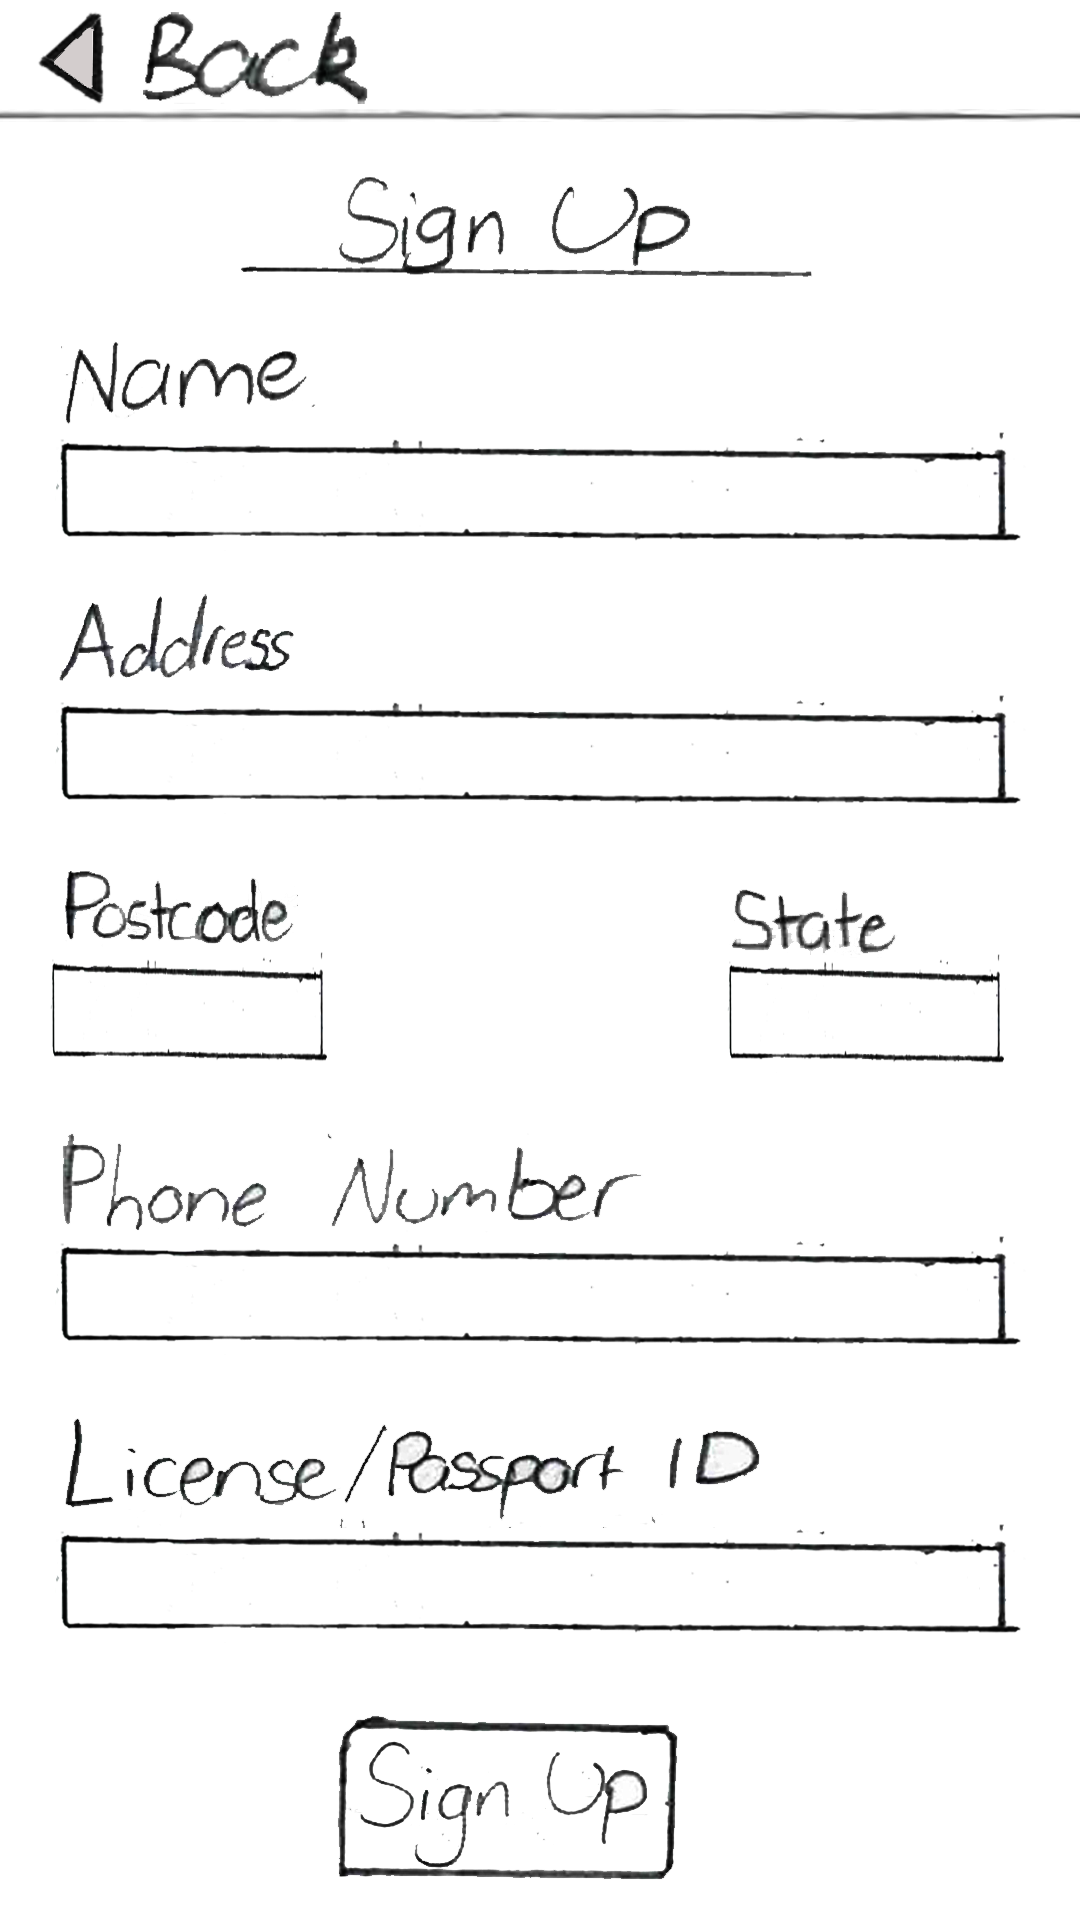 Back
Sign Up
Name
Address
Postcode State
Phone Number
License/Passport ID
Sign Up